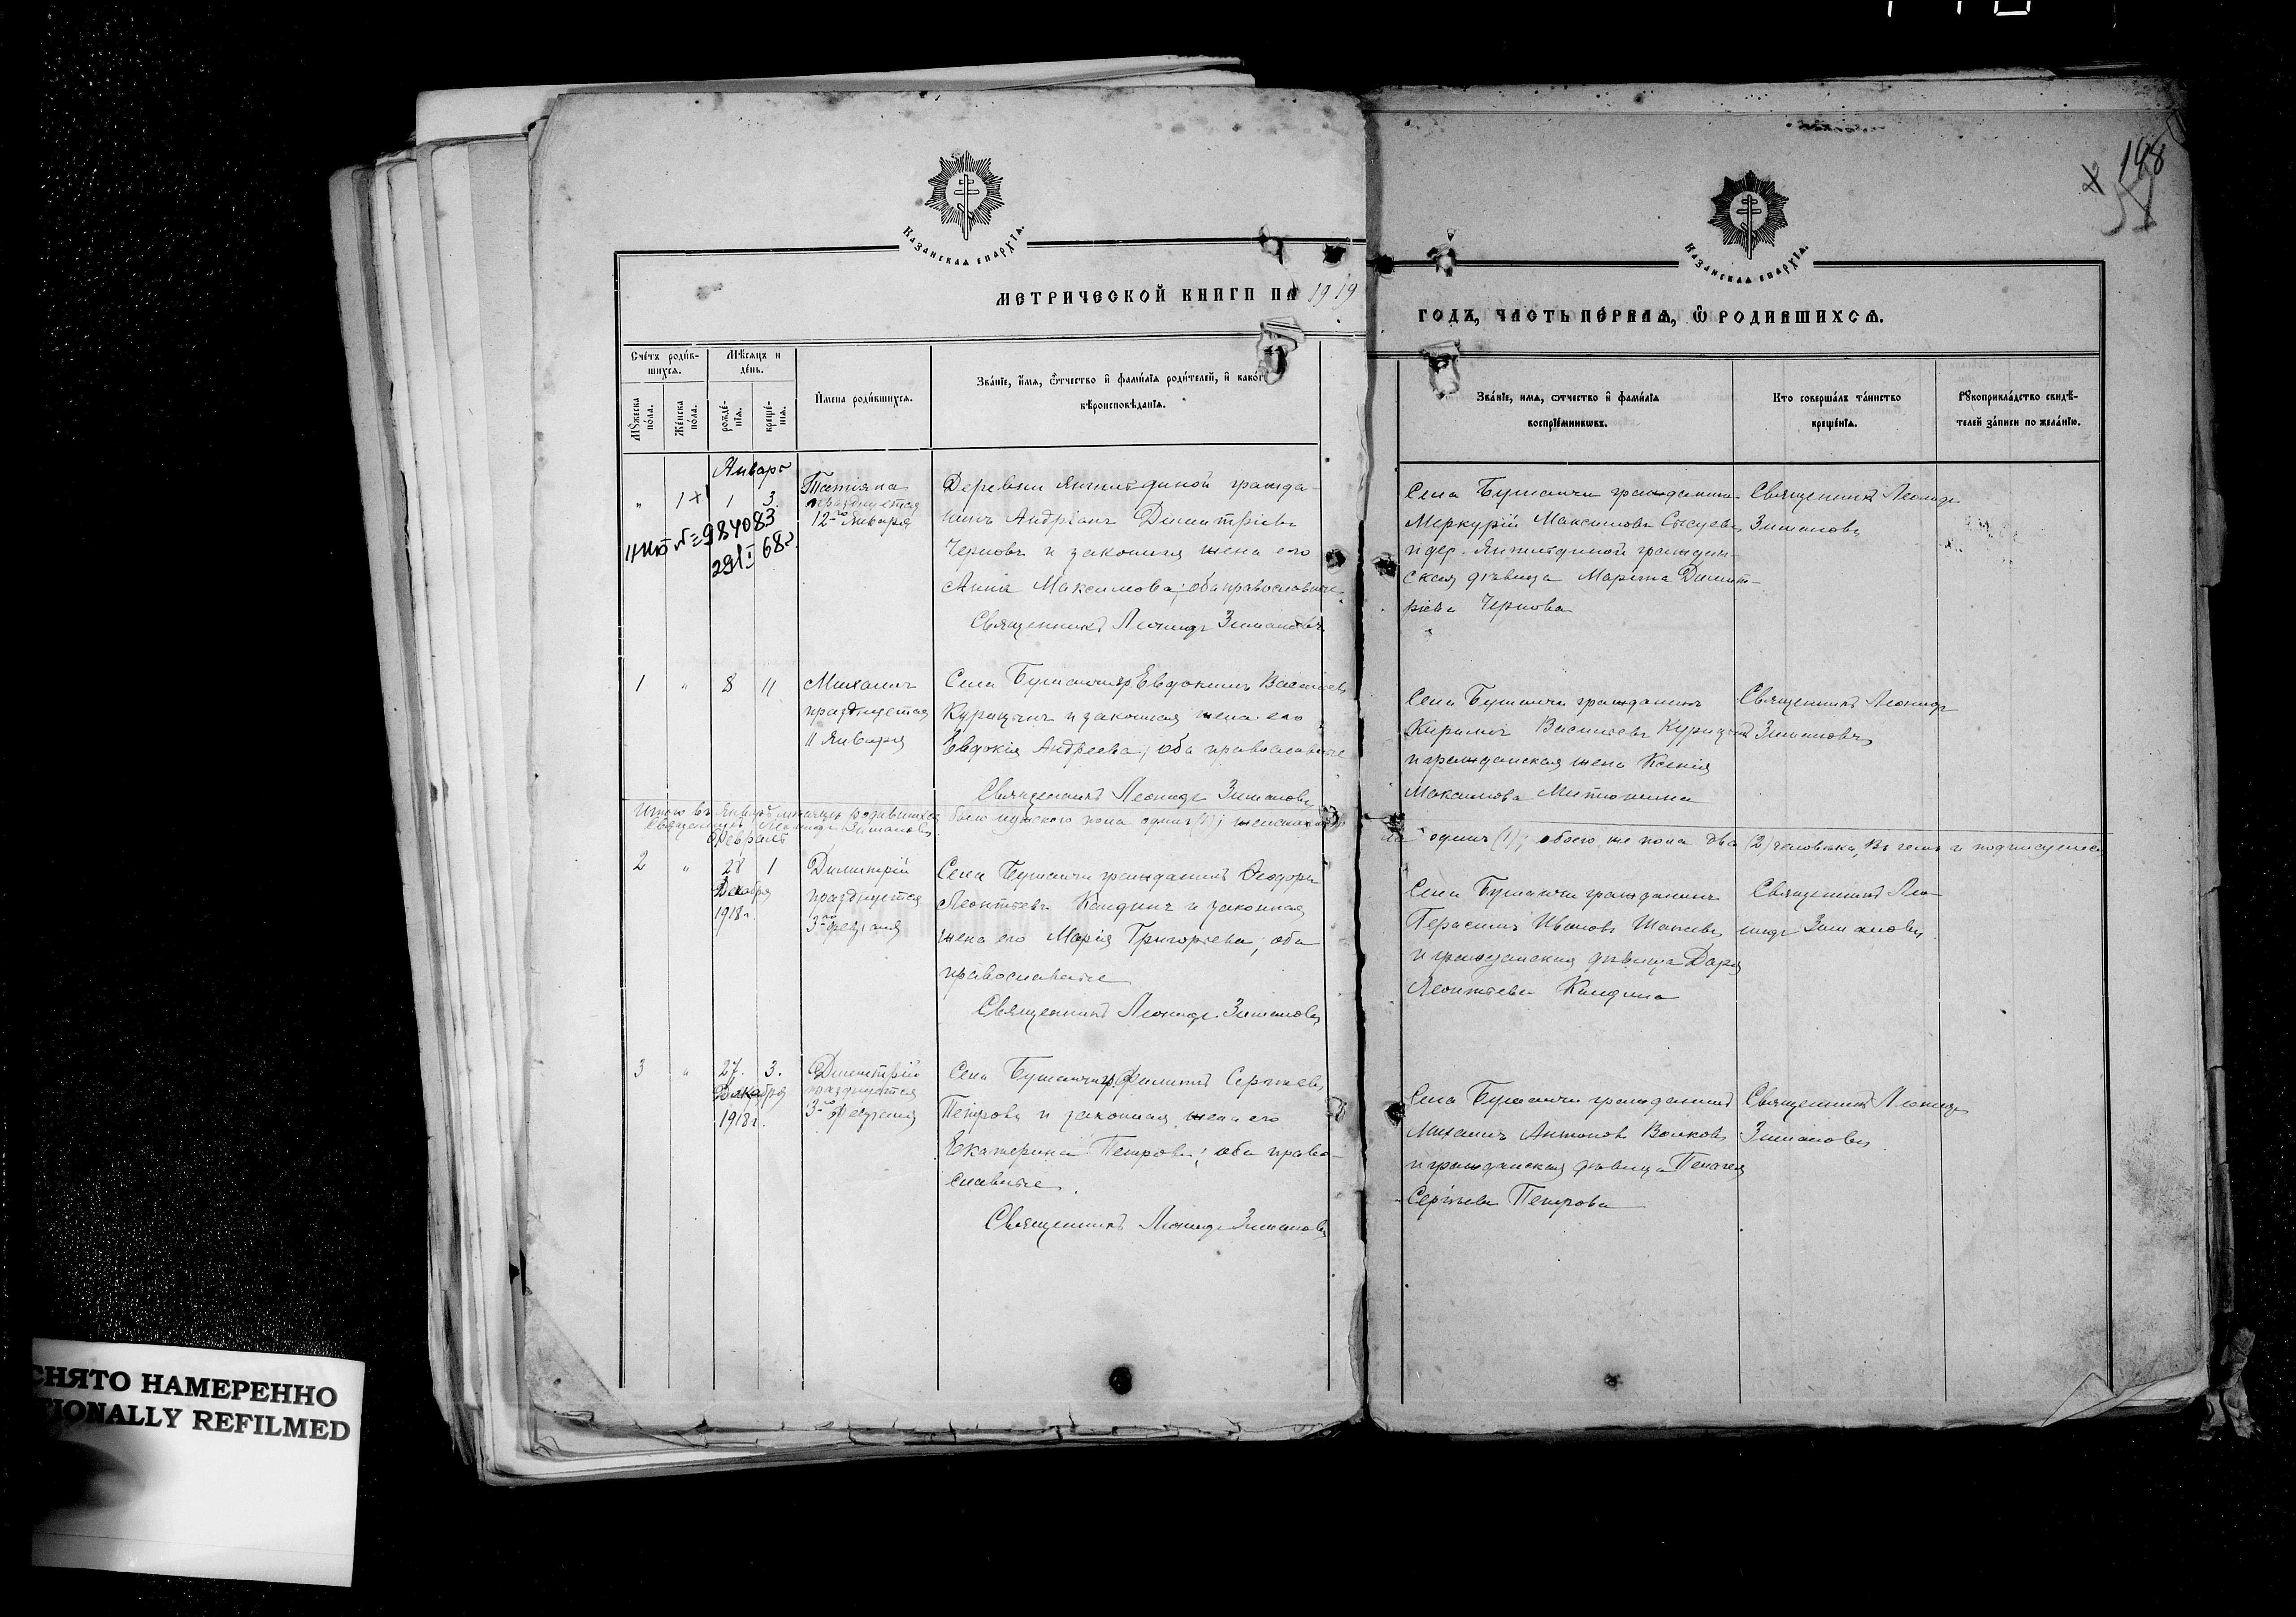 148
Казанская епархїѧ.
Казанская епархїѧ.
МЕТРИЧЕСКОЙ КНИГИ НА 1919
ГОДЪ, ЧАСТЬ ПЕРВАЯ, Ѽ РОДИВШИХСЯ.
Счетъ родив-
шихся.
Мѣсяцъ и
день.
Мꙋжеска
пола.
Женска
пола.
рожде-
нїя.
креще-
нїя.
Имена родившихся.
Званїе, имя, ѿчество и фамилїя родителей, и какого
вѣроисповѣданїя.
Званїе, имя, ѿчество и фамилїя
воспрїемниковъ.
Кто совершалъ таинство
крещенїя.
Рꙋкоприкладство свидѣ-
телей записи по желанїю.
Январь
" 1 1 3
Татіяна
празднуется
12го Января
№ 984083
29/I 68г.
Деревни гражда-
нинъ Андріанъ Димитріевъ
Черновъ и законная жена его
Анна Максимова; оба православные
Священникъ Леонидъ Зимановъ
Села гражданинъ
Меркурій Максимовъ
и дер. граждан-
ская дѣвица Марѳа Димит-
ріева Чернова
Священникъ Леонидъ
Зимановъ
1 " 8 11
Михаилъ
празднуется
11 Января
Села гр. Евдокимъ Васильевъ
Курицынъ и законная жена его
Евдокія Андреева; оба православные
Священникъ Леонидъ Зимановъ
Села гражданинъ
Кириллъ Васильевъ Курицынъ
и гражданская жена Ксенія
Максимова Митюнина
Священникъ Леонидъ
Зимановъ
Итого въ Январѣ мѣсяцѣ родившихся было мужского пола одинъ (1); женскаго по-
ла одинъ (1); обоего же пола два (2) человѣка, въ чемъ и подписуемся
Священникъ Леонидъ Зимановъ
Февраль
2 " 28 1
Декабря
1918г.
Димитрій
празднуется
3го февраля
Села гражданинъ Ѳеодоръ
Леонтьевъ Кандинъ и законная
жена его Марія Григорьева; оба
православные
Священникъ Леонидъ Зимановъ
Села гражданинъ
Герасимъ Ивановъ
и гражданская дѣвица Дарья
Леонтьева Кандина
Священникъ Лео-
нидъ Зимановъ
3 " 27. 3.
Декабря
1918г.
Димитрій
празднуется
3го февраля
Села гр. Филиппъ Сергѣевъ
Петровъ и законная жена его
Екатерина Петрова; оба право-
славные.
Священникъ Леонидъ Зимановъ
Села гражданинъ
Михаилъ Антоновъ Волковъ
и гражданская дѣвица Пелагея
Сергѣева Петрова
Священникъ Леонидъ
Зимановъ
СНЯТО НАМЕРЕННО
TIONALLY REFILMED